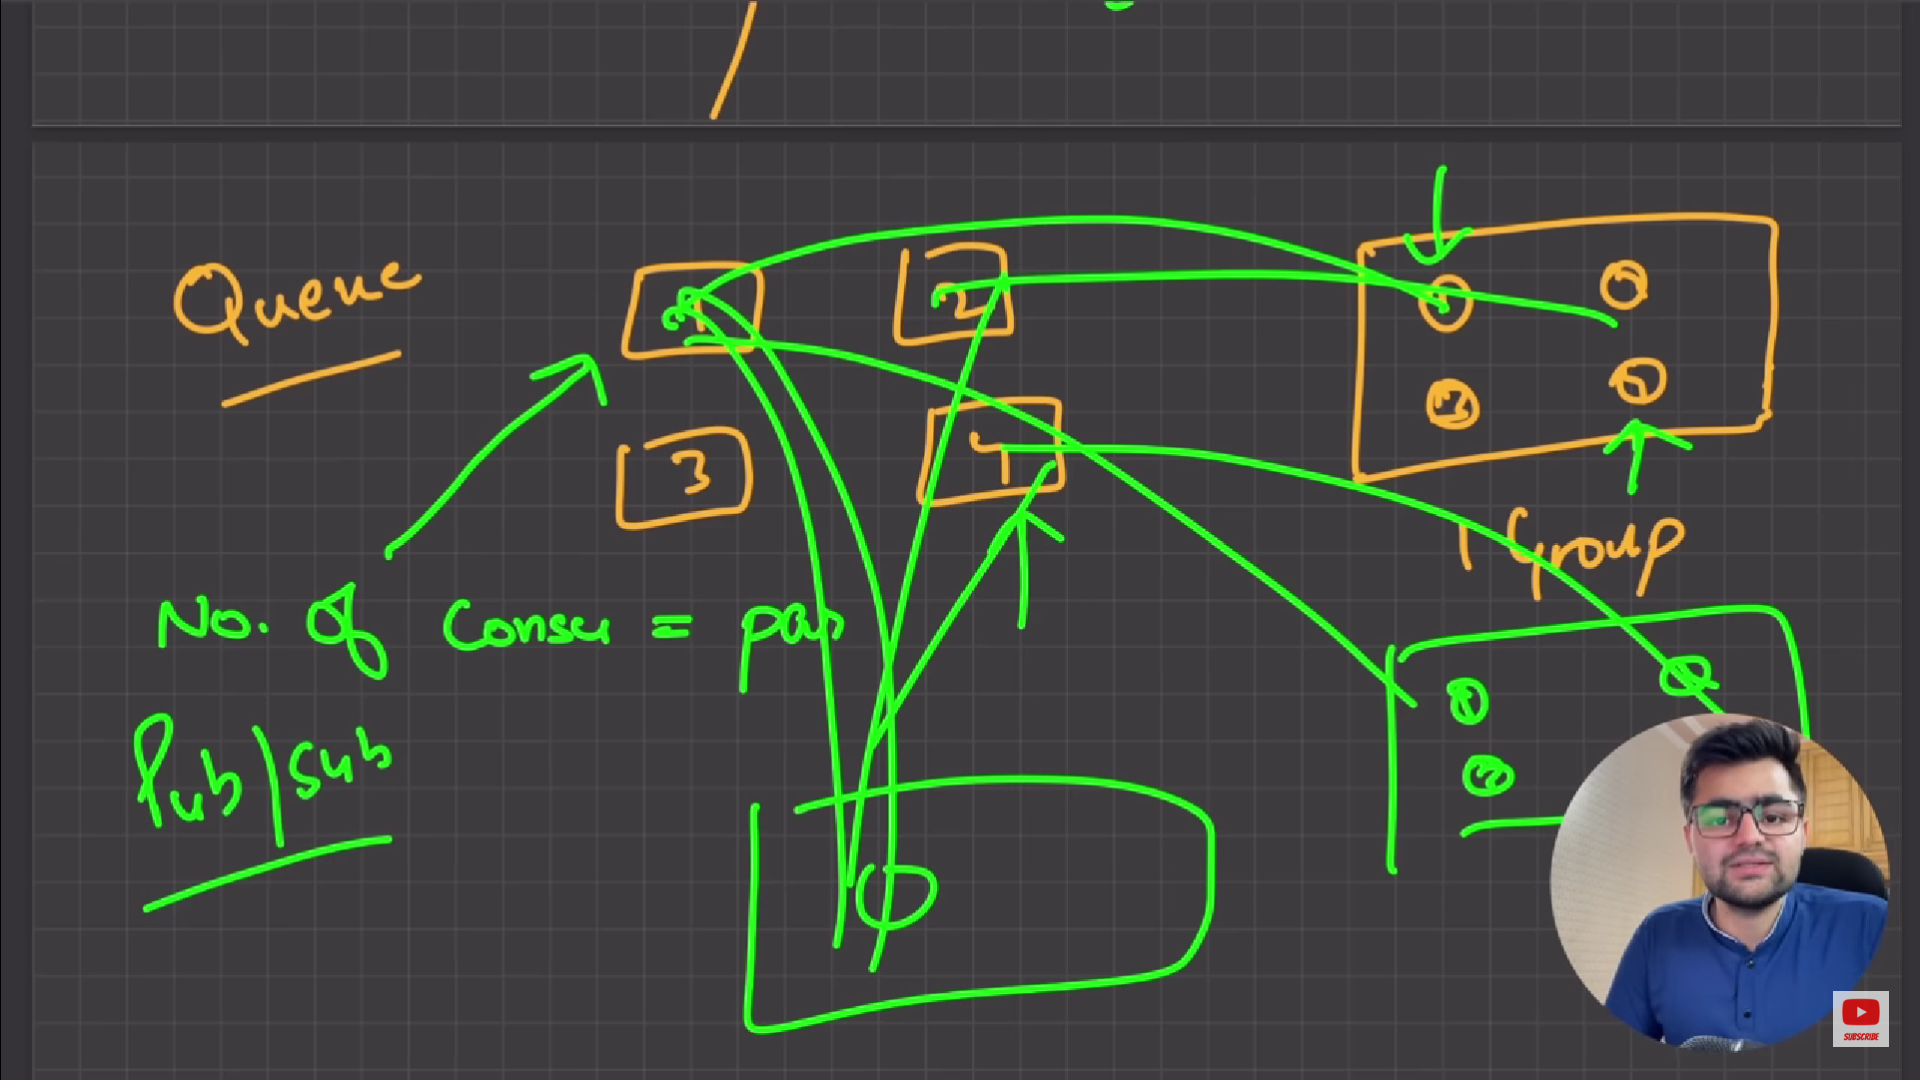 Queue
1
2
3
4
1 Group
No. of Consu = par
Pub/Sub
SUBSCRIBE